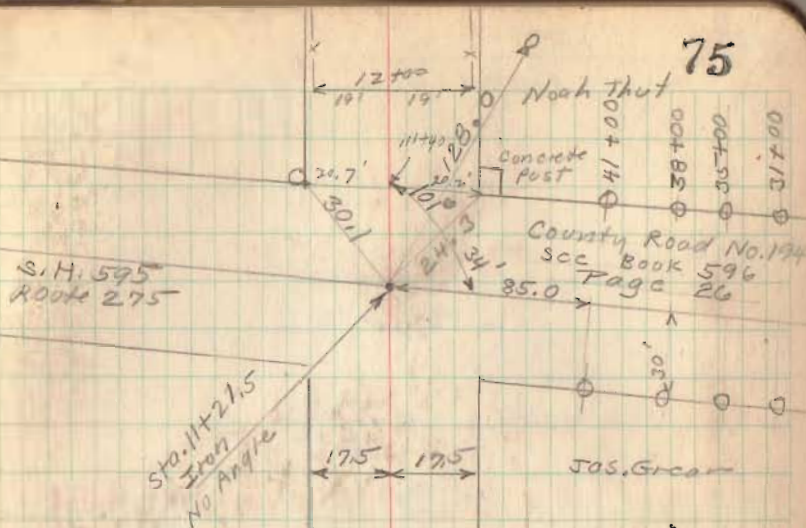 75
12+00
19' 19'
Noah Thut
11+40
128.
Concrete
Post
41+00
38+00
35+00
31+00
20.7'
20.2'
30.1
24.3
34'
County Road No.194
See Book 596
Page 26
S.H. 595
Route 275
85.0
30'
Sta. 11+21.5
Iron
No Angle
17.5 17.5
Jas. Grear